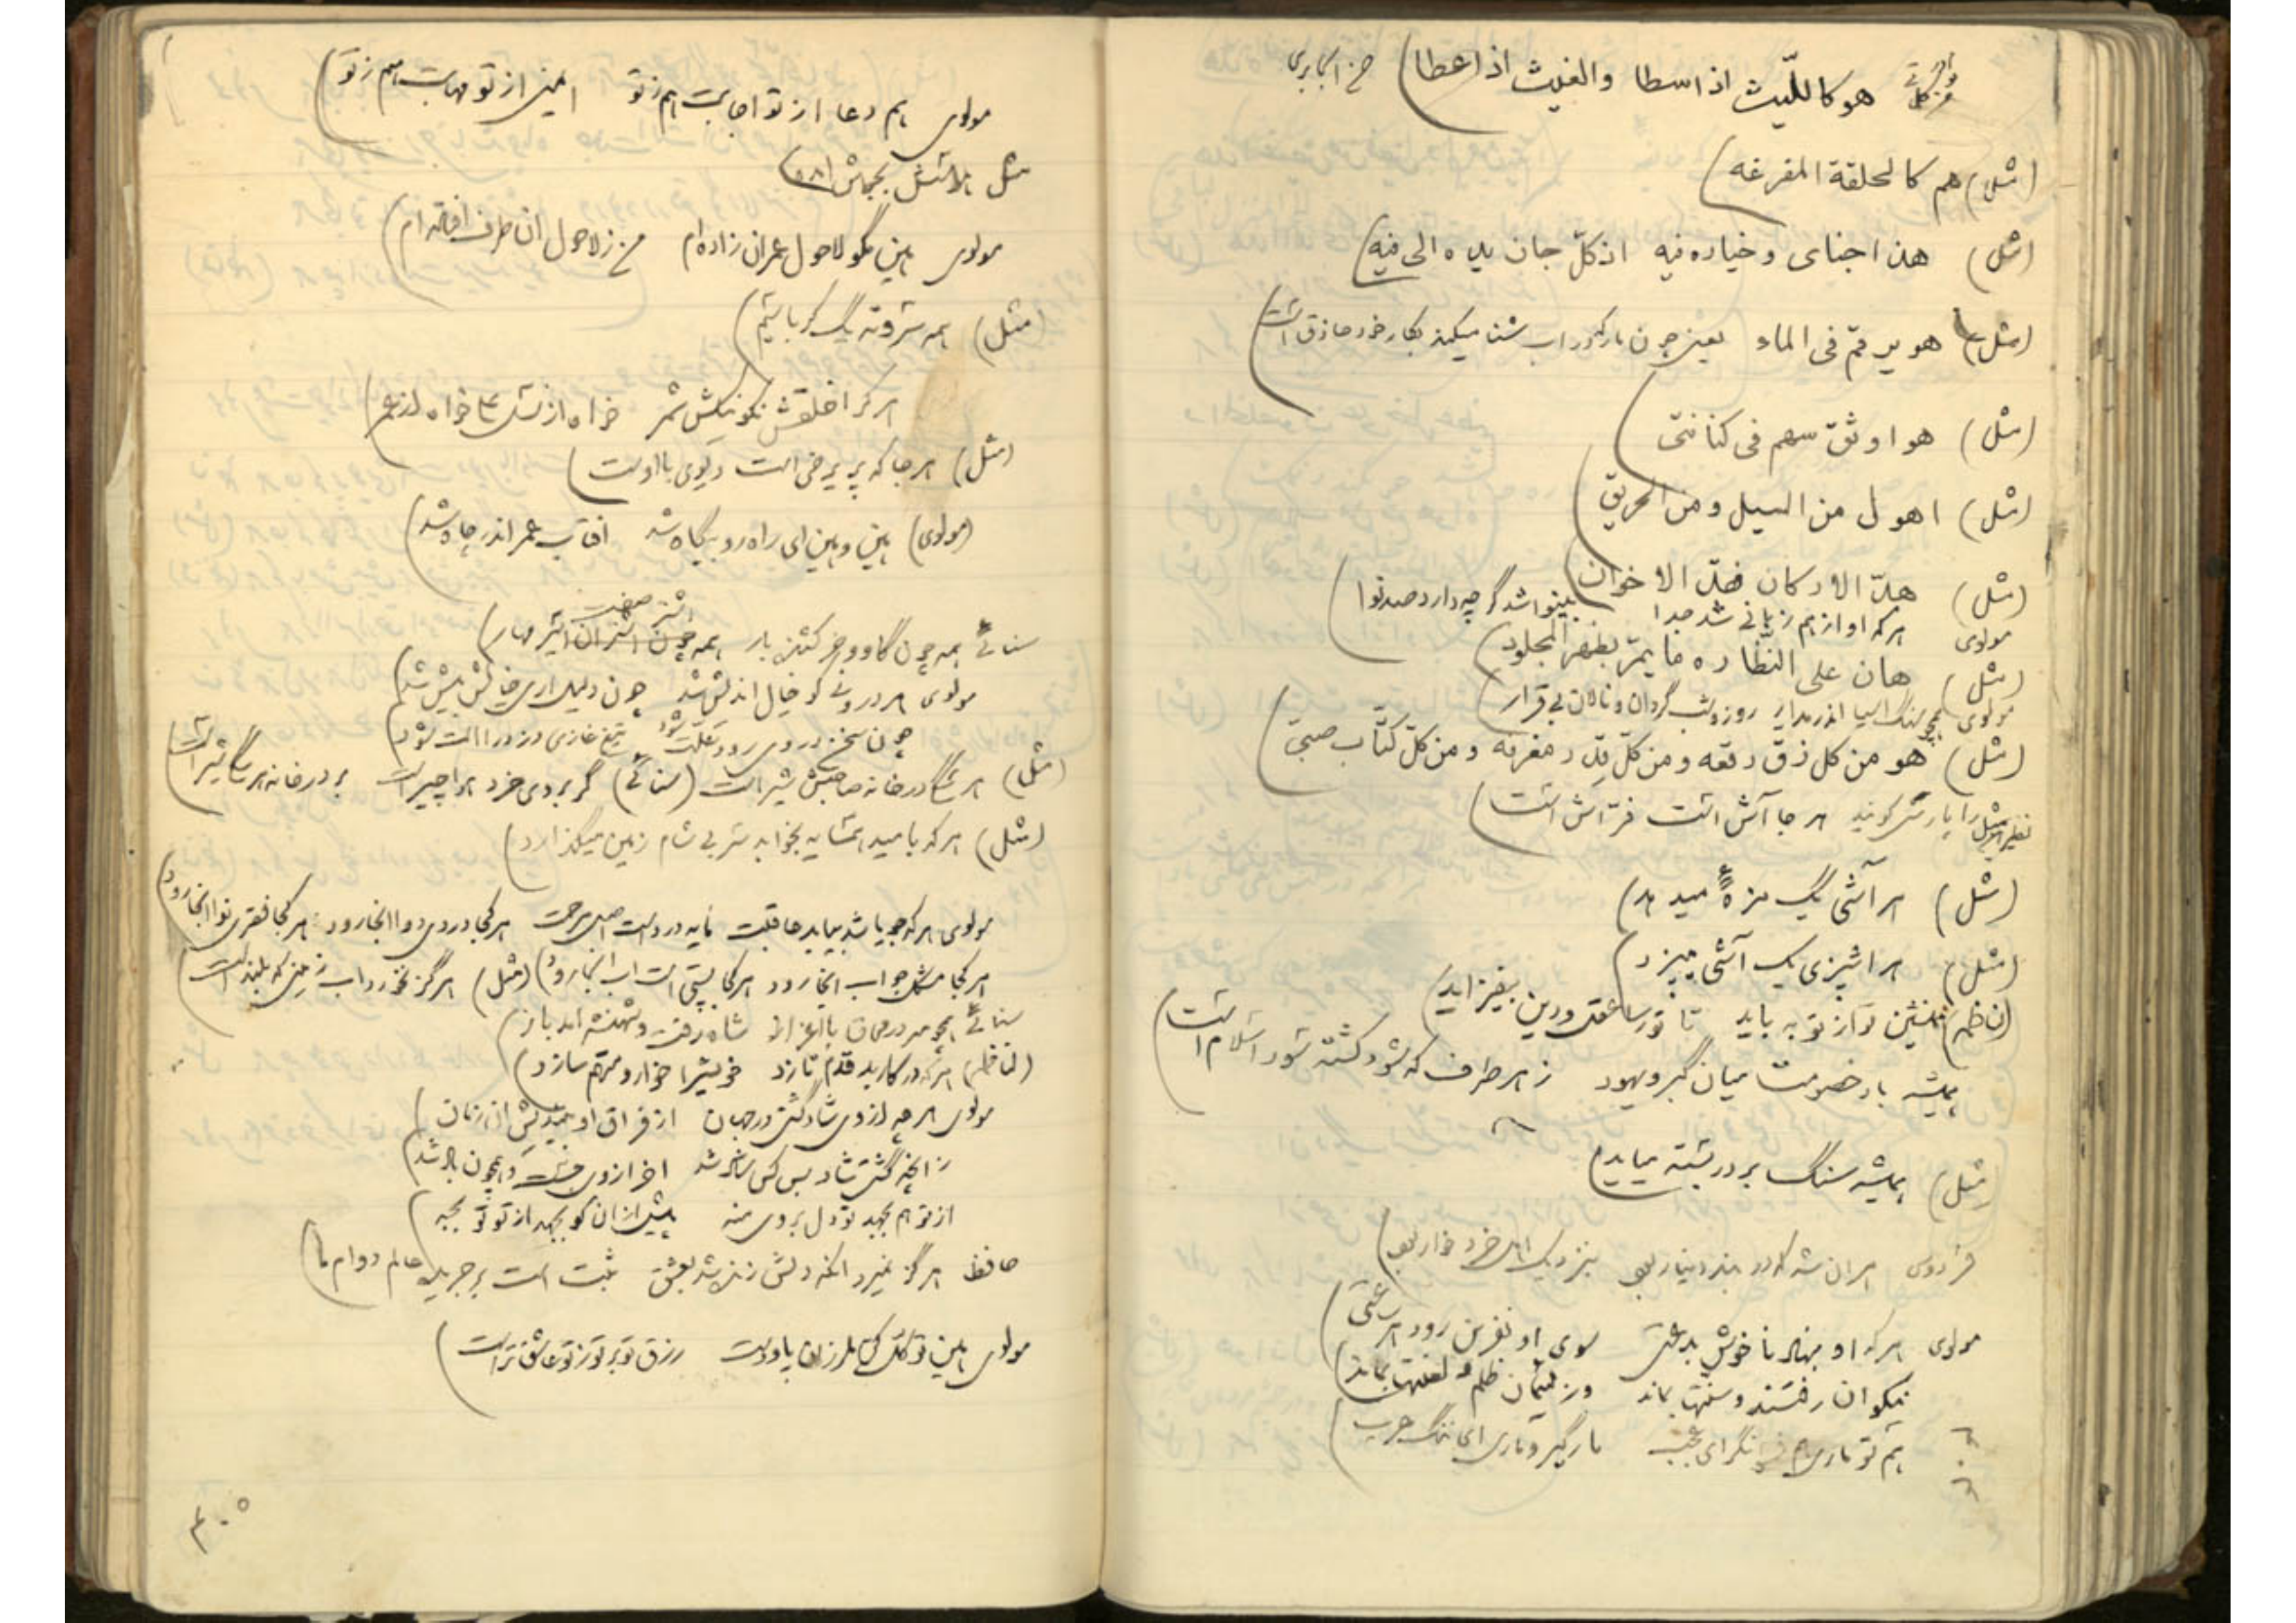 هو کاللّیث اذا سطا والغیث اذا عطا)
(مثل) هم کالحلقة المفرغه)
(مثل) هذا جنای و خیاره فیه اذ کلّ جان یده الی فیه)
(مثل) هو یرقم فی الماء یعنی چون مار در اب شنا میکند بکار خود حاذق است)
(مثل) هو اوثق سهم فی کنانتی
(مثل) اهول من السیل و من الحریق)
(مثل) هدّ الارکان فقد الاخوان
مولوی هرکه او از هم زبانی شد جدا بینوا شد گرچه دارد صد نوا)
(مثل) هان علی النظّاره ما یمرّ بظهر المجلود)
مولوی همچو سنگ اسیا اندر مدار روز و شب گردان و نالان بی قرار)
(مثل) هو من کل زقّ رقعه و من کلّ قدر مغرفه و من کلّ کتّاب صبیّ)
نظیر این مثل را پارسی گویند هر جا آش است فرّاش است)
(مثل) هر آشی یک مزهٔ میدهد)
(مثل) هر اشپزی یک آشی میپزد)
(ناظم) همنشین تو از تو به باید تا تو را عقل و دین بیفزاید)
همیشه باد خصومت میان گبر و یهود ز هر طرف که شود کشته سود اسلام است)
(مثل) همیشه سنگ بر در بسته میاید)
فردوسی هر ان شه که در بند دینار بود بنزدیک اهل خرد خوار بود)
مولوی هرکه او بنهاد ناخوش بدعتی سوی او نفرین رود هر ساعتی)
نیکوان رفتند و سنتها بماند وز لئیمان ظلم و لعنتها بماند)
هم تو ماری هم فسونگر ای عجب مارگیر و ماری ای ننگ عرب)
مولوی هم دعا از تو اجابت هم ز تو ایمنی از تو مهابت هم ز تو)
مثل
مولوی هین مگو لاحول عمران زاده ام من ز لاحول ان طرف افتاده ام)
(مثل) همه سر و ته یک کرباسیم)
هرکرا خلقش نکو نیکش شمر خواه از نسل علی خواه از عمر)
(مثل) هر جا که پریرخی است دیوی با اوست)
(مولوی) هین و هین ای راه رو بیگاه شد افتاب عمر اندر چاه شد)
سنائی همه چون گاو و خر کشنده بار همه چون اشتران اشتر مهار)
صفت
مولوی هر درونی کو خیال اندیش شد چون دلیل اری خیالش بیش شد)
چون سخن در وی رود علت شود تیغ غازی دزد را الت شود)
(مثل) هر سگ در خانه صاحبش شیر است (سنائی) گر بروی خرد چیر است بر در خانه هر سگی شیر است)
(مثل) هرکه بامید همسایه بخوابد سر بی شام زمین میگذارد)
مولوی هرکه جویا شد بیابد عاقبت مایه درد است اصل مرحمت هر کجا دردی دوا انجا رود هر کجا فقری نوا انجا رود)
هر کجا مشکل جواب انجا رود هر کجا پستی است اب انجا رود) (مثل) هرگز نخورد اب زمینی که بلند است)
سنائی همچو در با اعزاز شاه رفت و شهنشه امد باز)
(لناظم) هرکه در کار بد قدم تازد خویش را خوار و متهم سازد)
مولوی هرچه از وی شاد گشتی در جهان از فراق او بیندیش ان زمان)
زانچه گشتی شاد بس کس شاد شد اخر از وی جست و همچون باد شد)
از تو هم بجهد تو دل بر وی منه پیش از ان کو بجهد از تو تو بجه)
حافظ هرگز نمیرد انکه دلش زنده شد بعشق ثبت است بر جریده عالم دوام ما)
مولوی هین توکل کن ملرزان پا و دست رزق تو بر تو ز تو عاشق تر است)